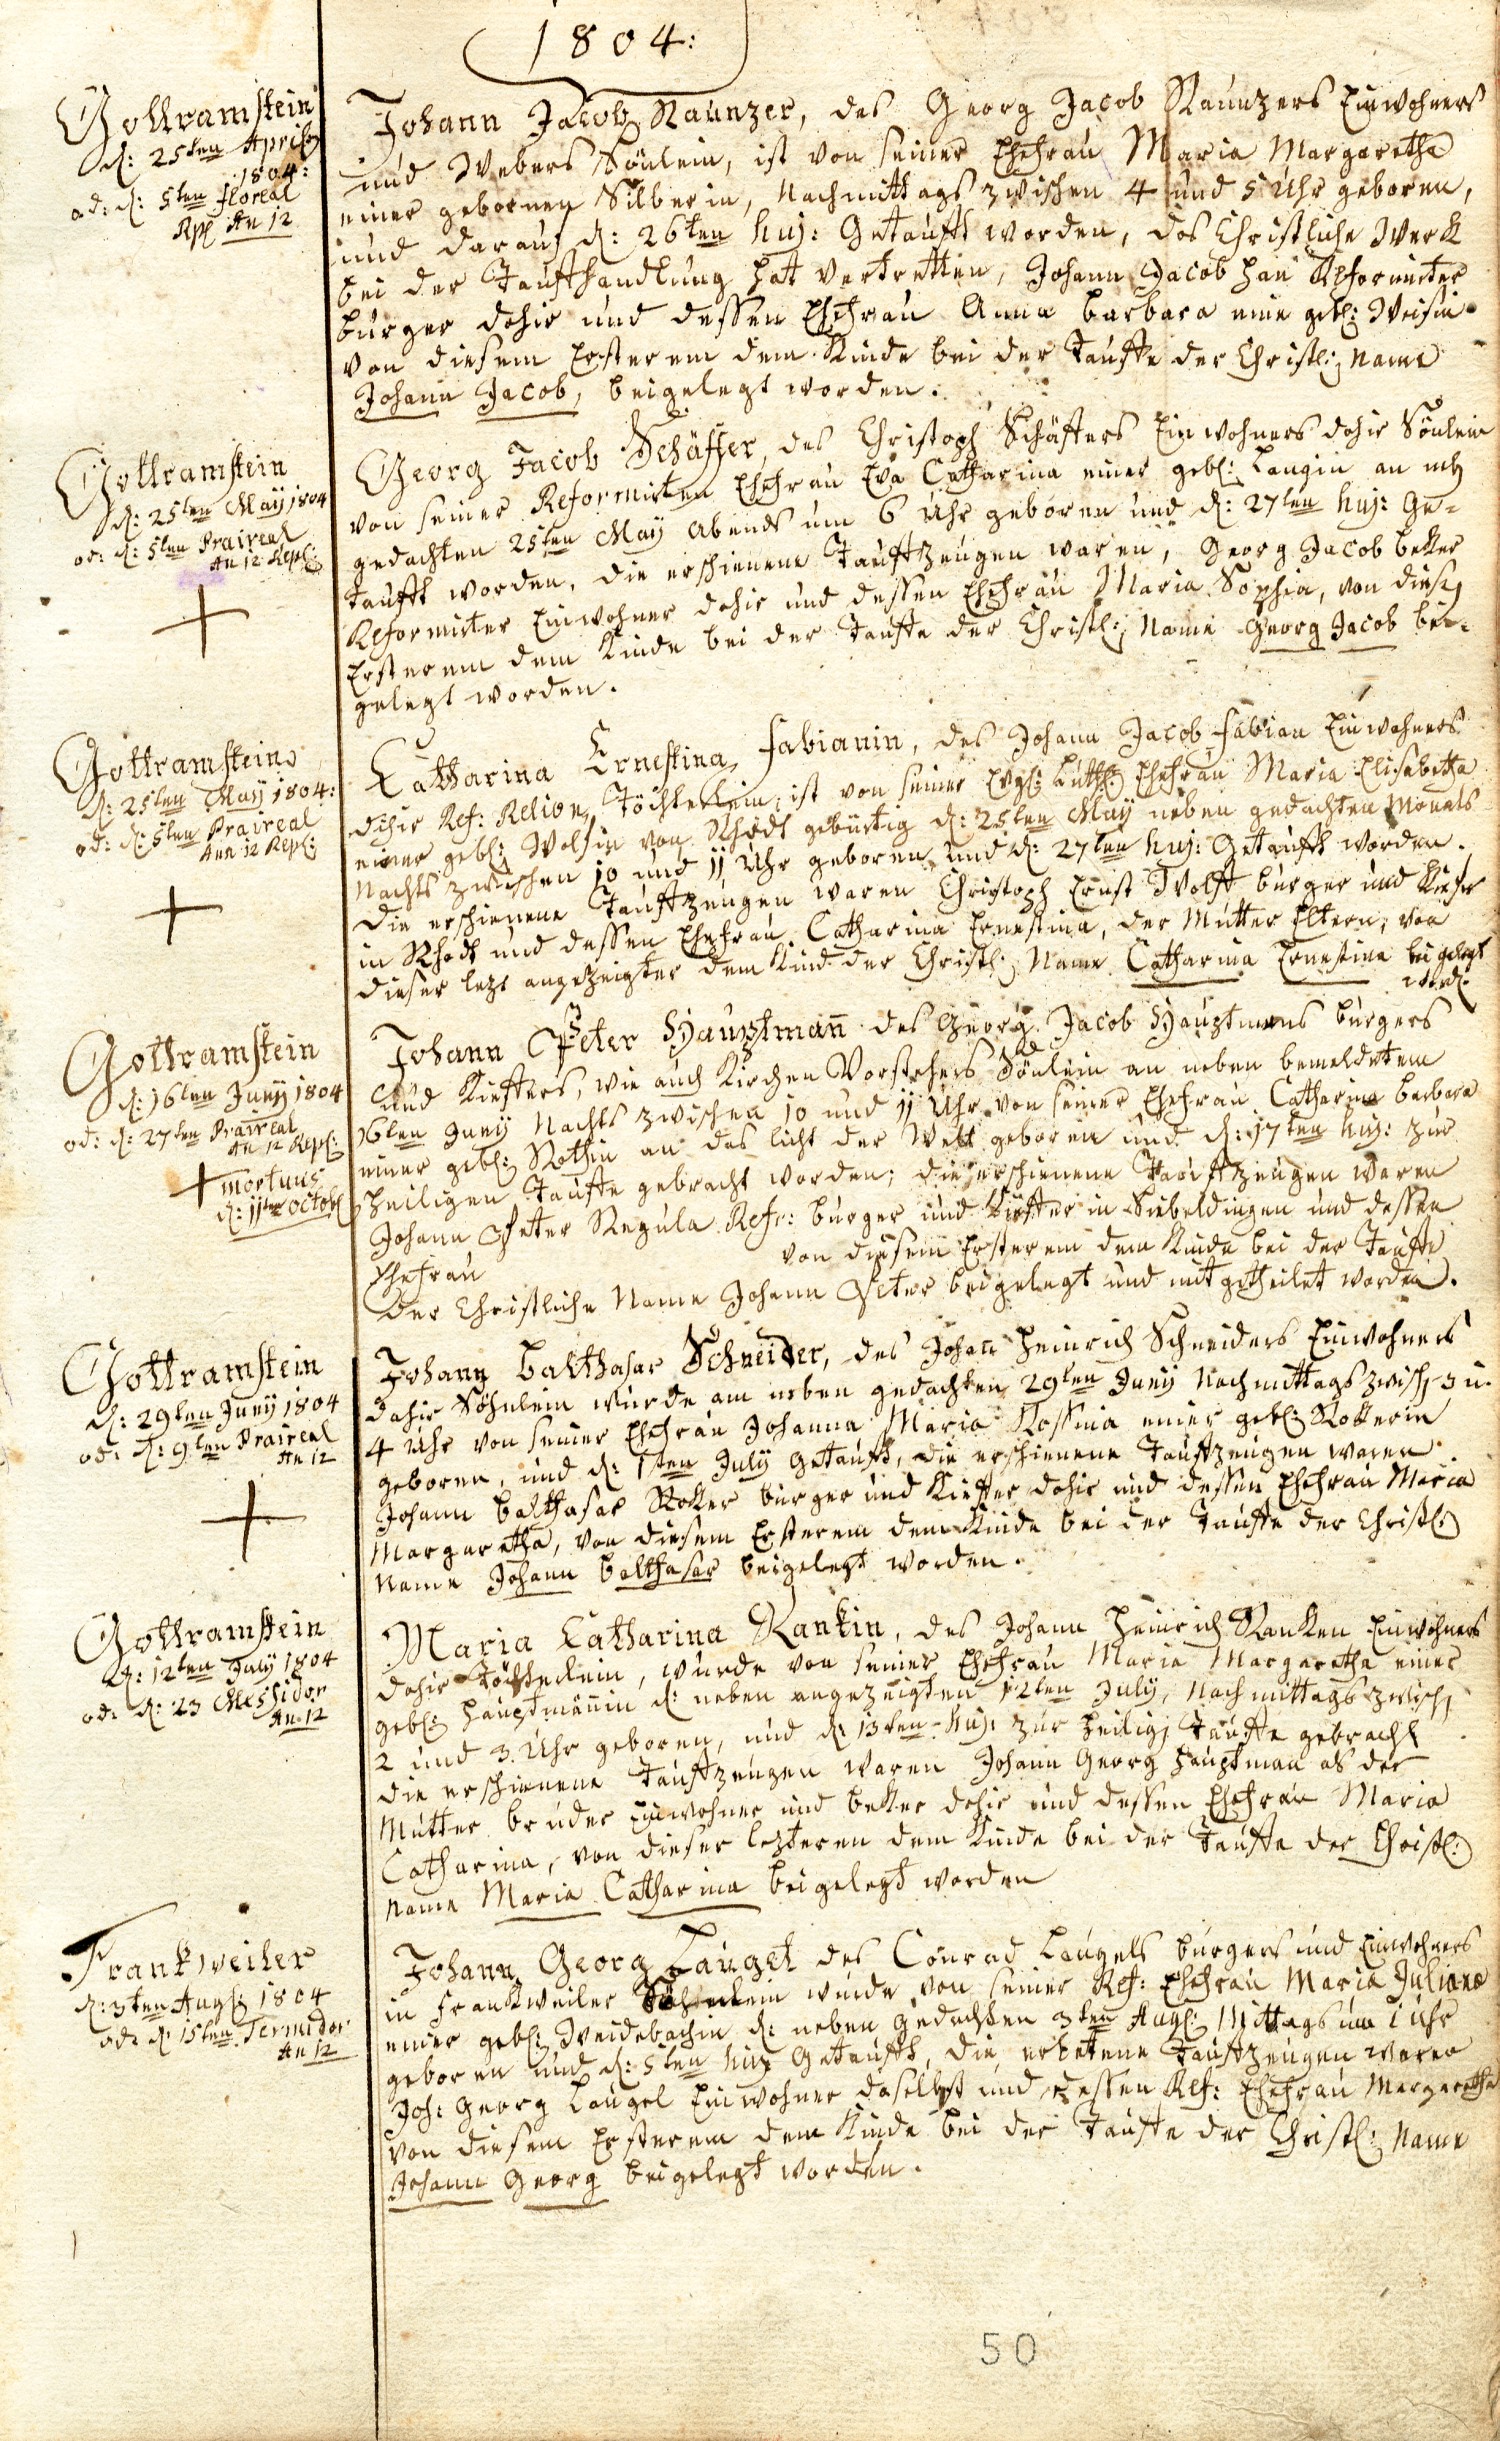 1804:
Gottramstein
d: 25ten Aprill
1804:
od: d: 5ten floreal
Rpl An 12
Johann Jacob Raunzer, des Georg Jacob Raunzers Einwohners
und Webers Sönlein, ist von seiner Ehefrau Maria Margaretha
einer gebornen Silberin, Nachmittags zwischen 4 und 5 Uhr geboren,
und darauf d: 26ten huj: Getaufft worden, das Christliche Werck
bei der Taufhandlung hat Vertretten, Johann Jacob Hau Reformirter
burger dahir und dessen Ehefrau Anna barbara eine gebl: Weisin
von diesem Ersterem dem Kinde bei der Tauffe der Christl: Name
Johann Jacob, beigelegt worden.
Gottramstein
d: 25ten May 1804
od: d: 5ten Praireal
An 12 Repl:
Georg Jacob Schäffer, des Christoph Schäffers Einwohners dahir Sönlein
von seiner Reformirten Ehefrau Eva Catharina einer gebl: Langin an
gedachten 25ten May Abends um 6 Uhr geboren und d: 27ten huj: Ge=
taufft worden, die erschienene Tauffzeugen waren, Georg Jacob beker
Reformirter Einwohner dahir und dessen Ehefrau Maria Sophia, von diesem
Ersterem dem Kinde bei der Tauffe der Christl: Name Georg Jacob bei=
gelegt worden.
Gottramstein
d: 25ten May 1804:
od: d: 5ten Praireal
Ann 12 Repl:
Catharina Ernestina Fabianin, des Johann Jacob Fabian Einwohners
dahir Ref: Relion, Töchterlein, ist von seiner Evgl: Luth: Ehefrau Maria Elisabetha
einer gebl: Wolfin von Rhodt gebürtig d: 25ten May neben gedachten Monats
Nachts zwischen 10 und 11 Uhr geboren und d: 27ten huj: Getaufft worden.
Die erschienene Tauffzeugen waren Christoph Ernst Wolff burger und Kiefer
in Rhodt und dessen Ehefrau Catharina Ernestina, der Mutter Eltern, von
dieser lezt angezeigter dem Kind der Christl: Name Catharina Ernestina bei gelegt
word.
Gottramstein
d: 16ten Juny 1804
od: d: 27ten Praireal
An 12 Repl:
mortuus
d: 11ten Octobl
Johann Peter Hauptmann des Georg Jacob Hauptmans burgers
und Kieffers, wie auch Kirchen Vorstehers Sönlein an neben bemeldetem
16ten Juny Nachts zwischen 10 und 11 Uhr von seiner Ehefrau Catharina barbara
einer gebl: Rothin an das licht der Welt geboren und d: 17ten huj: zur
Heiligen Tauffe gebracht worden; die erschienene Tauffzeugen waren
Johann Peter Regula Refr: burger und Kieffer in Siebeldingen und dessen
Ehefrau von diesem Ersterem dem Kinde bei der Tauffe
der Christliche Name Johann Peter beigelegt und mitgetheilet worden.
Gottramstein
d: 29ten Juny 1804
od: d: 9ten Praireal
An 12
Johann Balthasar Schneider, des Johan Heinrich Schneiders Einwohners
dahir Söhnlein wurde am neben gedachten 29ten Juny Nachmittags zwisch 3 u.
4 Uhr von seiner Ehefrau Johanna Maria einer gebl: Rokerin
geboren, und d: 1ten July getaufft, die erschienene Tauffzeugen waren
Johann Balthasar Roker burger und Kieffer dahir und dessen Ehefrau Maria
Margaretha, von diesem Ersterem dem Kinde bei der Tauffe der Christl:
Name Johann balthasar beigelegt worden.
Gottramstein
d: 12ten July 1804
od: d: 23 Messidor
An 12
Maria Catharina Rankin, des Johann Heinrich Ranken Einwohners
dahir Töchterlein, wurde von seiner Ehefrau Maria Margaretha einer
gebl: Hauptmännin d: neben angezeigten 12ten July, Nachmittags zwisch
2 und 3 Uhr geboren, und d: 13ten huj: zur Heilig Tauffe gebracht
die erschienene Tauffzeugen waren Johann Georg Hauptman als der
Mutter bruder Einwohner und beker dahir und dessen Ehefrau Maria
Catharina, von dieser lezteren dem Kinde bei der Tauffe der Christl:
Name Maria Catharina beigelegt worden
Frankweiler
d: 3ten Augl: 1804
od: d: 15ten Termidor
An 12
Johann Georg Laugel des Conrad Laugels burgers und Einwohners
in Frankweiler Söhnlein wurde von seiner Ref: Ehefrau Maria Juliana
einer gebl: Weidebachin d: neben gedachten 3ten Augl: Mittags um 1 Uhr
geboren und d: 5ten huj Getaufft, die erbetene Tauffzeugen waren
Joh: Georg Laugel Einwohner daselbst und dessen Ref: Ehefrau Margaretha
von diesem Ersterem dem Kinde bei der Tauffe der Christl: Name
Johann Georg beigelegt worden.
50